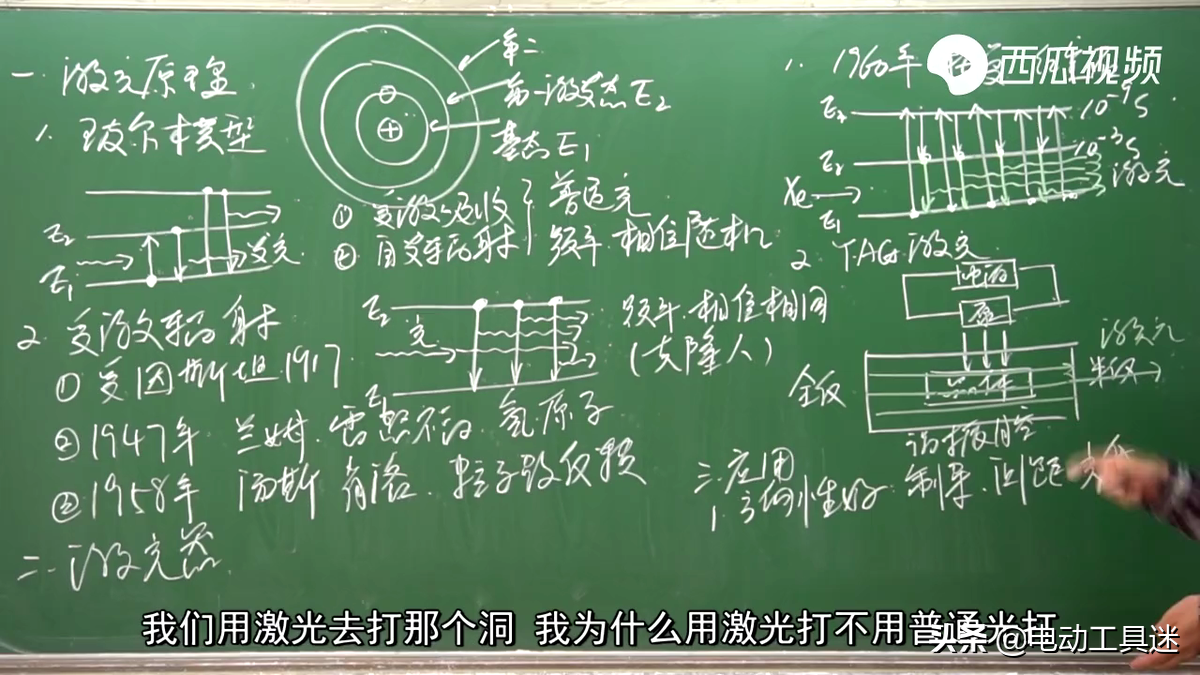 一. 激光原理
1. 玻尔模型
第二
第一激发态 E₂
基态 E₁
E₂
E₁
发光
① 受激吸收
② 自发辐射
普通光
频率.相位随机
2. 受激辐射
① 爱因斯坦.1917
② 1947年 兰姆.雷瑟不福.氢原子
③ 1958年 汤斯 肖洛.粒子数反转
E₂
光
E₁
频率.相位相同
(克隆人)
二. 激光器
1. 1960年
E₃
10⁻⁹S
E₂
10⁻³S
激光
Xe
E₁
2. YAG.激光
电源
氙
晶体
全反
半反
激光
谐振腔
三.应用
1. 方向性好.制导.测距
西瓜视频
我们用激光去打那个洞 我为什么用激光打不用普通光打
头条 @电动工具迷